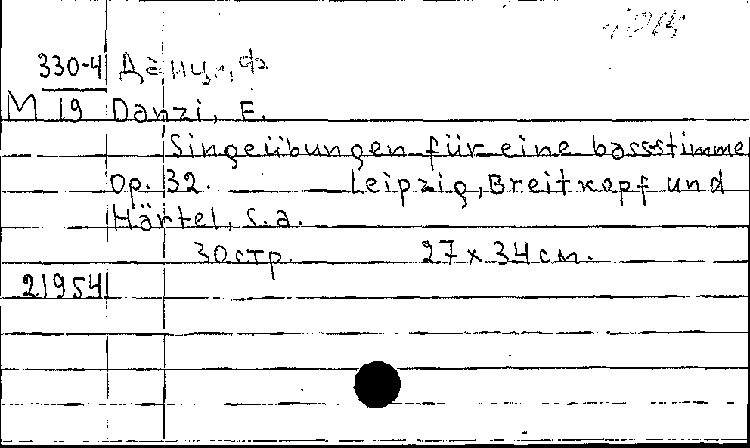 330-4 Данци, Ф
M 19 Danzi, E.
Singeübungen für eine bassstimme
Op. 32. Leipzig, Breitkopf und
Härtel, s.a.
30 стр. 27 x 34 см.
21954